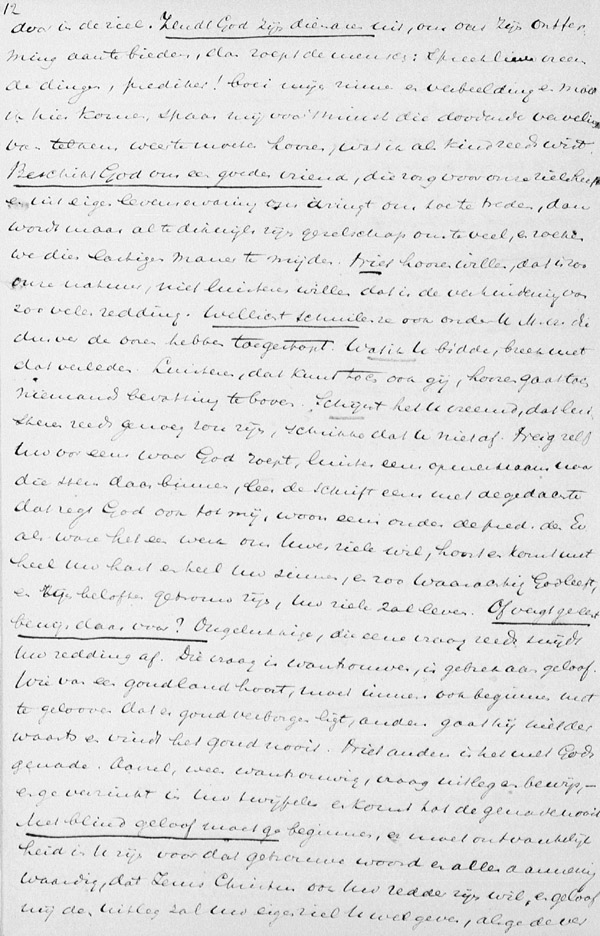 12
door in de ziel. Zendt God zijn dienaren uit, om ons zijn ontfer-
ming aan te bieden, dan roept de mensch: Spreek lieve vreem-
de dingen, prediker! boei mijn zinnen en verbeelding en moet
ik hier komen, spaar mij voor 't minst die doodende verveling
van telkens weer te moeten hooren, wat ik als kind reeds wist.
Beschikt God ons een goeden vriend, die zorg voor onze ziel
en uit eigen levenservaring ons dringt om toe te treden, dan
wordt maar al te dikwijls zijn gezelschap ons te veel, en zoeken
we dien lastigen maner te mijden. Niet hooren willen, dat is zoo
onze natuur, niet luisteren willen dat is de verhindering van
zoo veler redding. Wellicht schuilen ze ook onder U M. H. die
dusver de ooren hebben toegestopt. Wat ik U bidde, breek met
dat verleden. Luisteren, dat kunt toch ook gij, hooren gaat toch
niemands bevatting te boven. Schijnt het U vreemd, dat luis-
teren reeds genoeg zou zijn, schrikke dat U niet af. Neig zelf
Uw oor eens waar God roept, luister eens opmerkzaam naar
die stem daarbinnen, lees de Schrift eens met de gedachte
dat zegt God ook tot mij, woon eens onder de pred. des Ev
als ware het een werk om Uwer ziele wil, hoort en komt met
heel Uw hart en heel Uw zinnen, en zoo waarachtig God leeft,
en zijn beloften getrouw zijn, Uw ziele zal leven. Of vergt ge eerst
bewijs daar voor? Ongelukkige, die eene vraag reeds snijdt
Uw redding af. Die vraag is wantrouwen, is gebrek aan geloof.
Wie van een goudland hoort, moet immers ook beginnen met
te gelooven dat er goud verborgen ligt, anders gaat hij niet der-
waarts en vindt het goud nooit. Niet anders is het met Gods
genade. Aarzel, wees wantrouwig, vraag uitleg en bewijs,—
en ge verzinkt in Uw twijfelen en komt tot de genade nooit
Met blind geloof moet ge beginnen, er moet ontvankelijk-
heid in U zijn voor dat getrouwe woord en aller aanneming
waardig, dat Jezus Christus ook Uw redder zijn wil, en geloof
mij den uitleg zal Uw eigen ziel U wel geven, als ge de ver